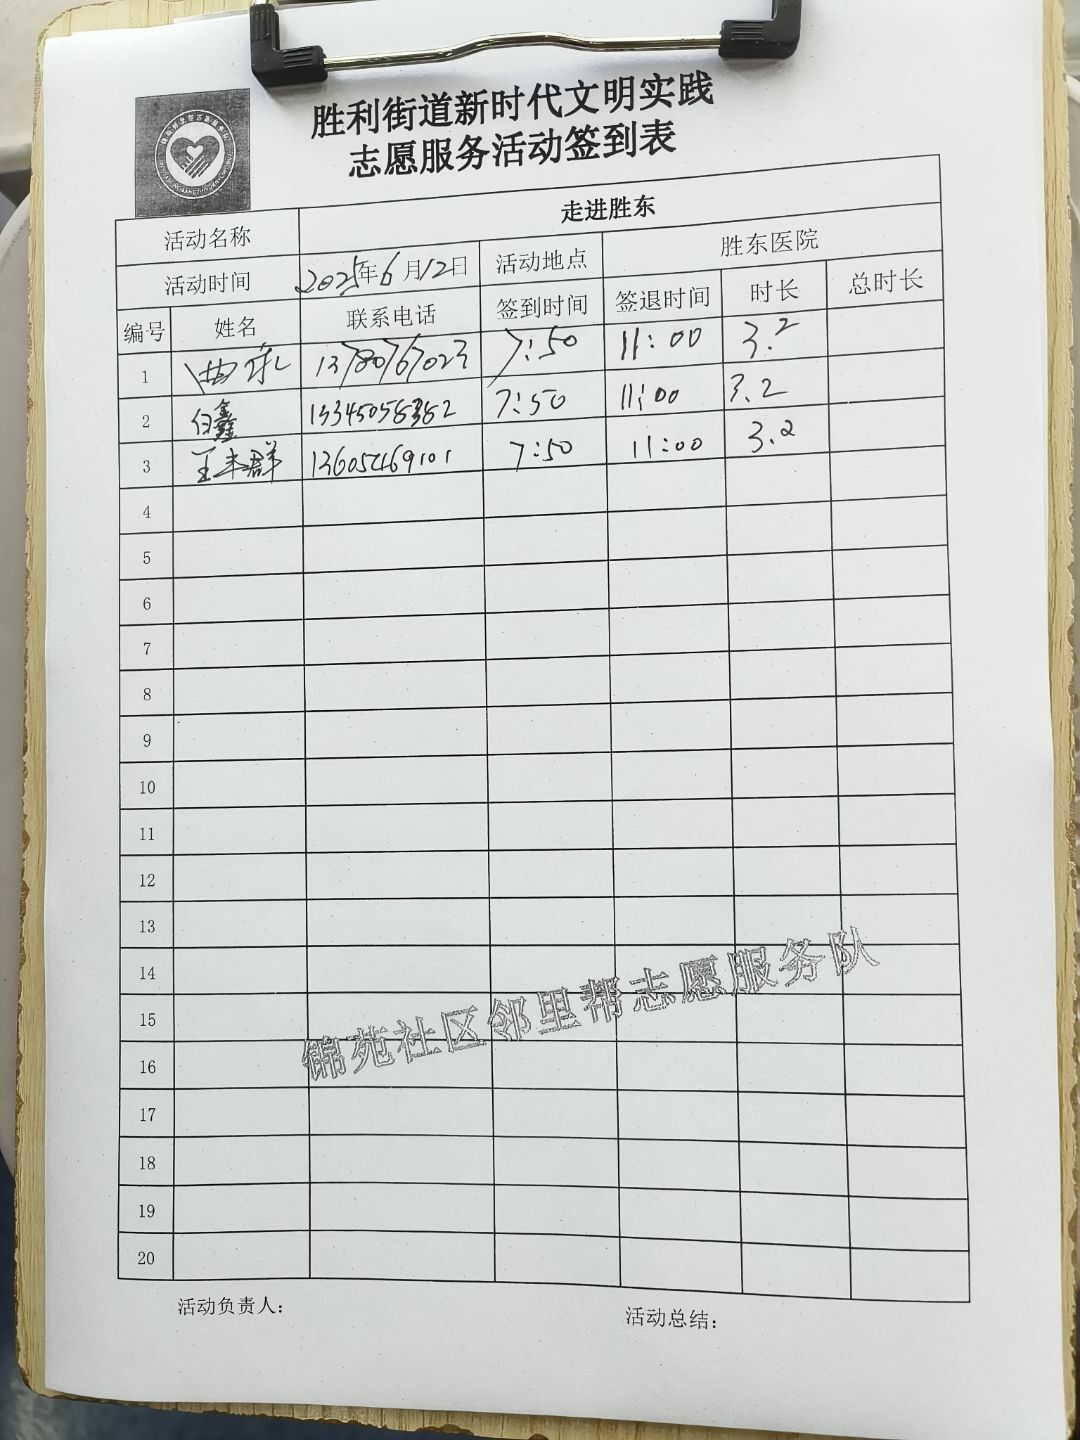 胜利街道新时代文明实践
志愿服务活动签到表
活动名称 走进胜东
活动时间 2025年6月12日 活动地点 胜东医院
编号 姓名 联系电话 签到时间 签退时间 时长 总时长
1 曲 13780767023 7:50 11:00 3.2
2 白鑫 15345058382 7:50 11:00 3.2
3 王本群 13605469101 7:50 11:00 3.2
4
5
6
7
8
9
10
11
12
13
14
15
16
17
18
19
20
锦苑社区邻里帮志愿服务队
活动负责人: 活动总结: